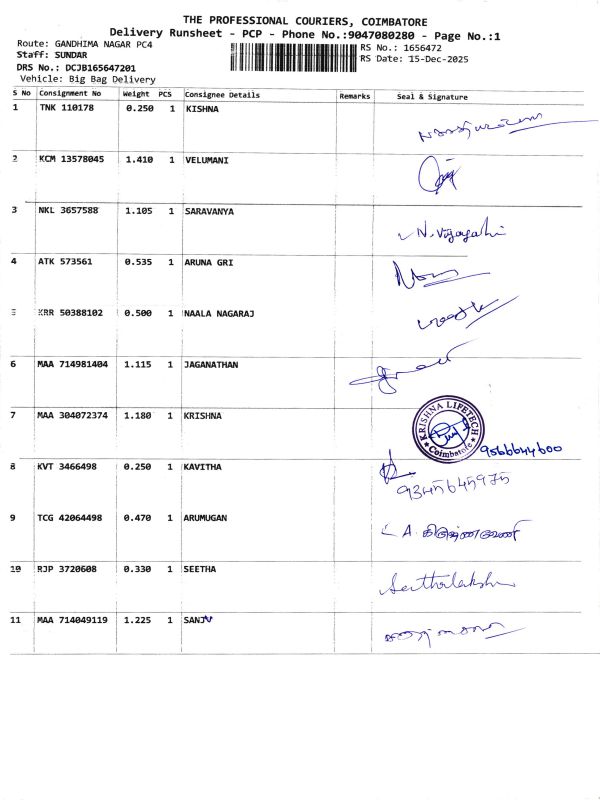 THE PROFESSIONAL COURIERS, COIMBATORE
Delivery Runsheet - PCP - Phone No.:9047080280 - Page No.:1
Route: GANDHIMA NAGAR PC4
RS No.: 1656472
Staff: SUNDAR
RS Date: 15-Dec-2025
DRS No.: DCJB165647201
Vehicle: Big Bag Delivery
S No Consignment No Weight PCS Consignee Details Remarks Seal & Signature
1 TNK 110178 0.250 1 KISHNA
2 KCM 13578045 1.410 1 VELUMANI
3 NKL 3657588 1.105 1 SARAVANYA
4 ATK 573561 0.535 1 ARUNA GRI
5 KRR 50388102 0.500 1 NAALA NAGARAJ
6 MAA 714981404 1.115 1 JAGANATHAN
7 MAA 304072374 1.180 1 KRISHNA
KRISHNA LIFETECH
Coimbatore
9566644600
8 KVT 3466498 0.250 1 KAVITHA
9345645975
9 TCG 42064498 0.470 1 ARUMUGAN
A.
10 RJP 3720608 0.330 1 SEETHA
Seethalakshmi
11 MAA 714049119 1.225 1 SANJV